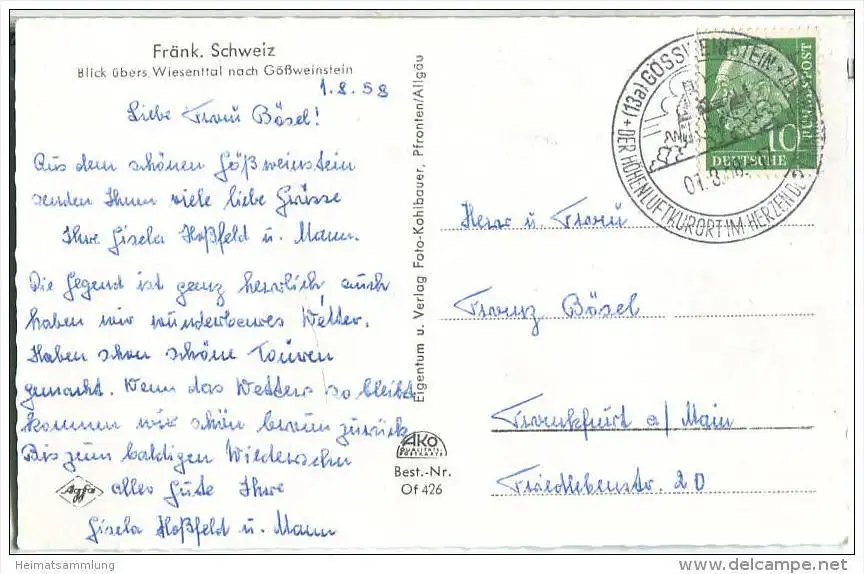 Fränk. Schweiz
Blick übers Wiesenttal nach Gößweinstein
1.8.58
Liebe Frau Bösel!
Aus dem schönen Gößweinstein
senden Ihnen viele liebe Grüsse
Ihre Gisela Hoßfeld u. Mann.
Die Gegend ist ganz herrlich auch
haben wir wunderbares Wetter.
Haben schon schöne Touren
gemacht. Wenn das Wetter so bleibt
kommen wir schön braun zurück
Bis zum baldigen Wiedersehn
alles Gute Ihre
Gisela Hoßfeld u. Mann
Agfa
Eigentum u. Verlag Foto-Kohlbauer, Pfronten/Allgäu
AKO
QUALITÄTS
POSTKARTE
Best.-Nr.
Of 426
(13a) GÖSSWEINSTEIN
+ DER HÖHENLUFTKURORT IM HERZEN DER
01.8.58
10
DEUTSCHE
BUNDESPOST
Herr u. Frau
Franz Bösel
Frankfurt a/Main
Friedlebenstr. 20
www.delcampe.net
Heimatsammlung